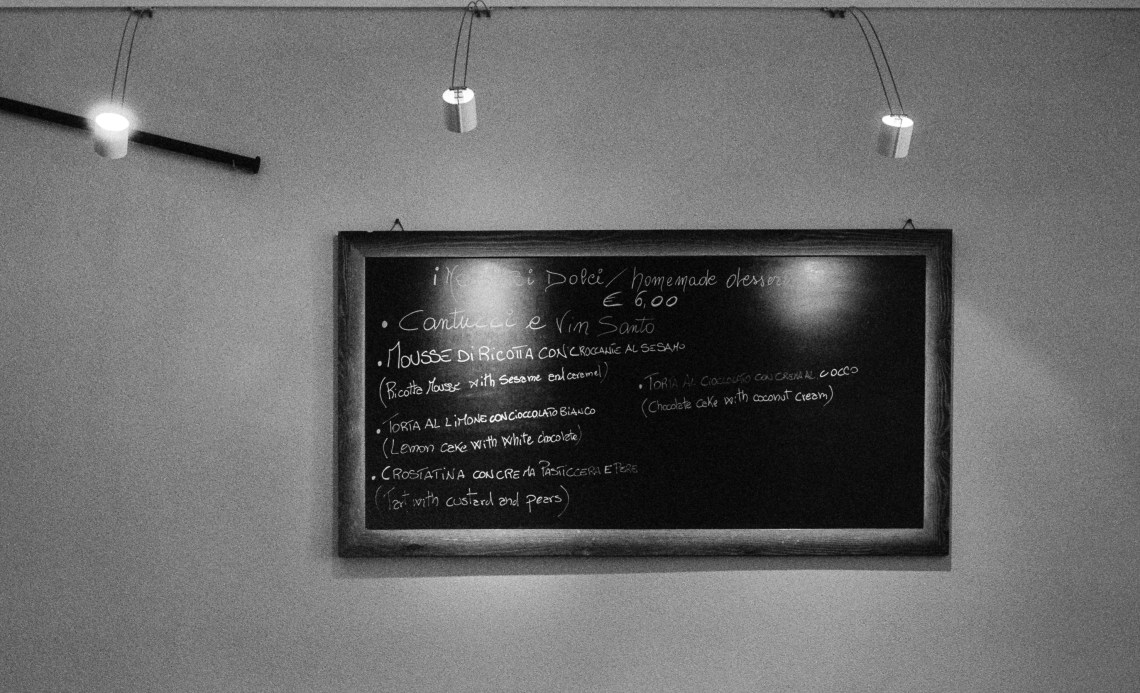 i Nostri Dolci / homemade desserts
€ 6,00
• Cantucci e Vin Santo
• MOUSSE DI RICOTTA CON CROCCANTE AL SESAMO
(Ricotta Mousse with Sesame and caramel)
• TORTA AL LIMONE CON CIOCCOLATO BIANCO
(Lemon cake with white chocolate)
• CROSTATINA CON CREMA PASTICCERA E PERE
(Tart with custard and pears)
• TORTA AL CIOCCOLATO CON CREMA AL COCCO
(Chocolate cake with coconut cream)